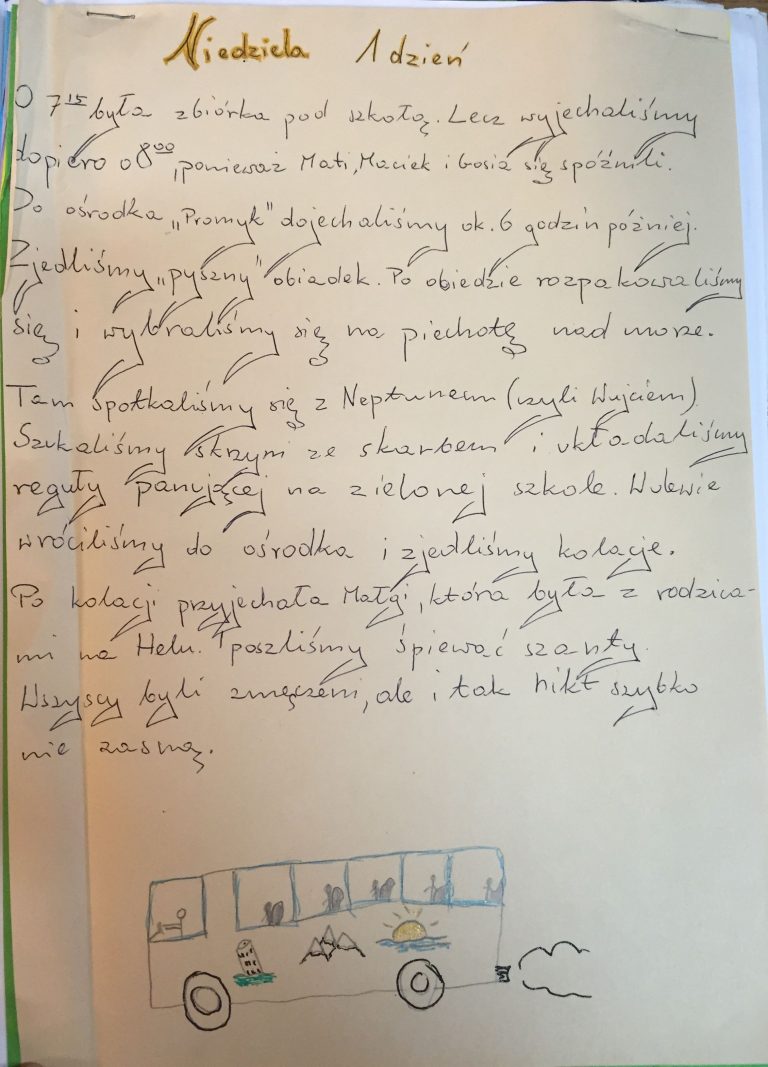 Niedziela 1 dzień
O 7¹⁵ była zbiórka pod szkołą. Lecz wyjechaliśmy
dopiero o 8⁰⁰, ponieważ Mati, Maciek i Gosia się spóźnili.
Do ośrodka „Promyk" dojechaliśmy ok. 6 godzin później.
Zjedliśmy „pyszny" obiadek. Po obiedzie rozpakowaliśmy
się i wybraliśmy się na piechotę nad morze.
Tam spotkaliśmy się z Neptunem (czyli Wujciem)
Szukaliśmy skrzyni ze skarbem i układaliśmy
reguły panującej na zielonej szkole. W ulewie
wróciliśmy do ośrodka i zjedliśmy kolacje.
Po kolacji przyjechała Małgi, która była z rodzica-
mi na Helu. I poszliśmy śpiewać szanty.
Wszyscy byli zmęczeni, ale i tak nikt szybko
nie zasną.